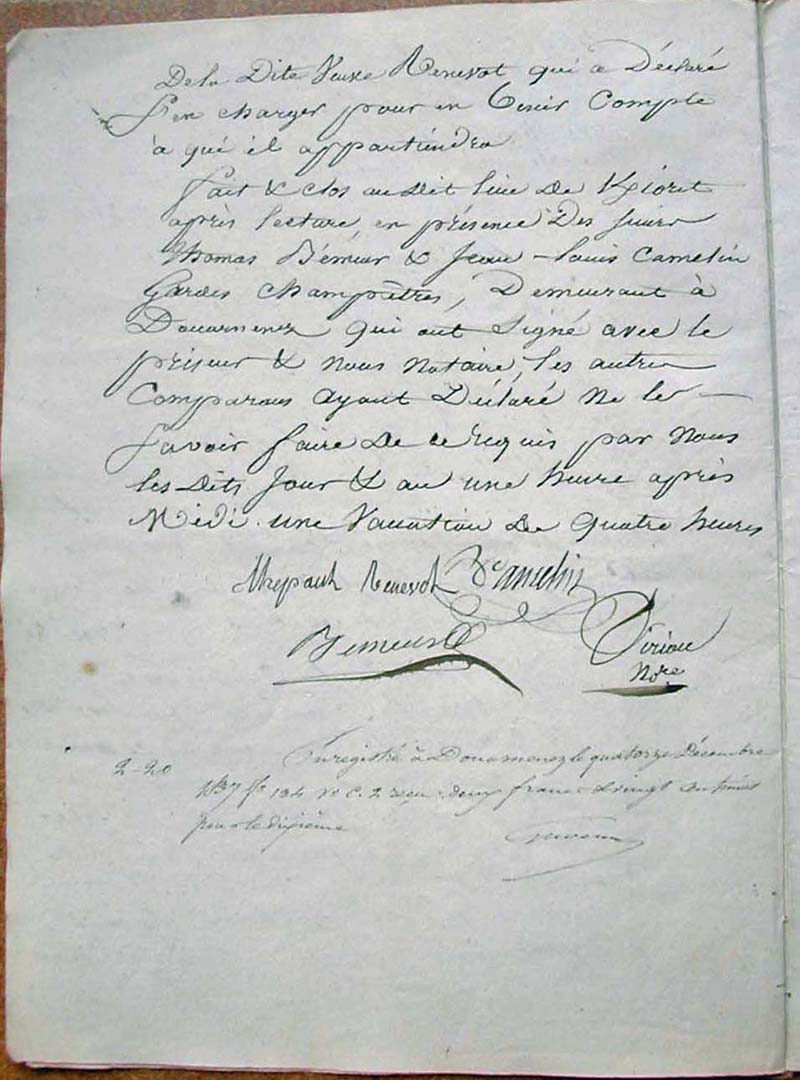 De la Dite Veuve Renevot qui a Déclaré
s'en charger pour en Tenir Compte
à qui il appartiendra
fait & clos au dit lieu De
après lecture, en présence Des
Thomas Bémeur & Jean-louis Camelin
Gardes champêtres, Demeurant à
Douarnenez qui ont Signé avec le
priseur & nous notaire, les autres
Comparans ayant Déclaré ne le
savoir faire de ce requis par nous
les Dits Jour & an une heure après
Midi. une Vacation De quatre heures
Renevot Camelin
Bemeur
Nore
2-20 Enregistré à Douarnenez le quatorze Décembre
1837 fo 134 Vo C. 2 reçu deux francs & vingt centimes
pour le dixième